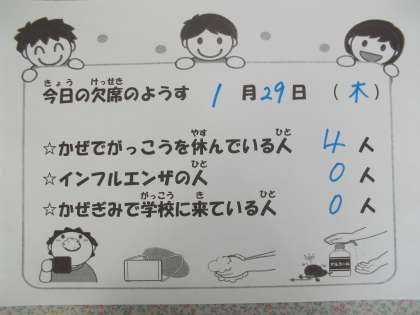 きょう けっせき
今日の欠席のようす 1月29日 (木)
やす ひと
☆かぜでがっこうを休んでいる人 4人
ひと
☆インフルエンザの人 0人
がっこう き ひと
☆かぜぎみで学校に来ている人 0人
アルコール